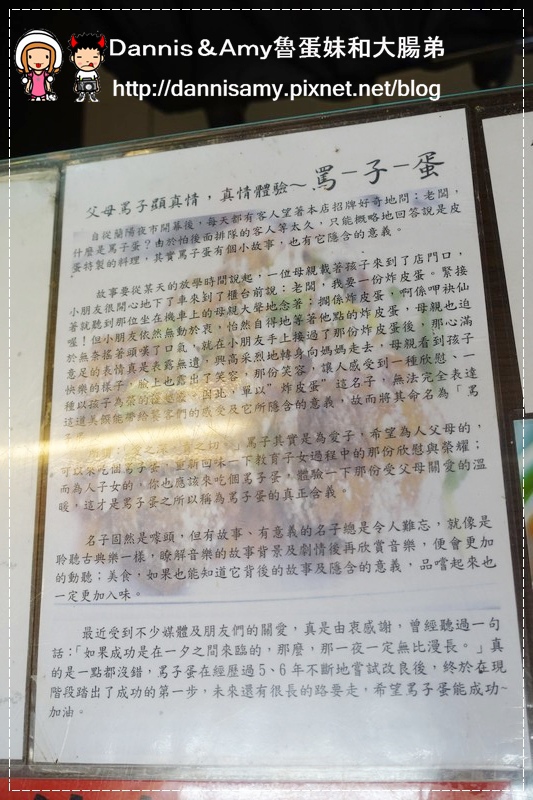 Dannis＆Amy魯蛋妹和大腸弟
http://dannisamy.pixnet.net/blog
父母罵子顯真情，真情體驗~罵－子－蛋
自從蘭陽夜市開幕後，每天都有客人望著本店招牌好奇地問：老闆，
什麼是罵子蛋？由於怕後面排隊的客人等太久，只能概略地回答說是皮
蛋特製的料理，其實罵子蛋有個小故事，也有它隱含的意義。
故事要從某天的放學時間說起，一位母親載著孩子來到了店門口，
小朋友很開心地下了車來到了櫃台前說：老闆，我要一份炸皮蛋。緊接
著就聽到那位坐在機車上的母親大聲地念著：擱係炸皮蛋，啊係呷袂仙
喔！但小朋友依然無動於衷，怡然自得地等著他點的炸皮蛋，母親也迫
於無奈搖著頭嘆了口氣。就在小朋友手上接過了那份炸皮蛋後，那心滿
意足的表情真是表露無遺，興高采烈地轉身向媽媽走去，母親看到孩子
快樂的樣子，臉上也露出了笑容，那份笑容，讓人感受到一種欣慰、一
種以孩子為榮的
因此，單以"炸皮蛋"這名子，無法完全表達
這道美饌能帶給饕客們的感受及它所隱含的意義，故而將其命名為「罵
罵子其實是為愛子，希望為人父母的，
可以來吃個罵子蛋，重新回味一下教育子女過程中的那份欣慰與榮耀；
而為人子女的，你也應該來吃個罵子蛋，體驗一下那份受父母關愛的溫
暖，這才是罵子蛋之所以稱為罵子蛋的真正含義。
名子固然是噱頭，但有故事、有意義的名子總是令人難忘，就像是
聆聽古典樂一樣，瞭解音樂的故事背景及劇情後再欣賞音樂，便會更加
的動聽；美食，如果也能知道它背後的故事及隱含的意義，品嚐起來也
一定更加入味。
最近受到不少媒體及朋友們的關愛，真是由衷感謝，曾經聽過一句
話：「如果成功是在一夕之間來臨的，那麼，那一夜一定無比漫長。」真
的是一點都沒錯，罵子蛋在經歷過5、6年不斷地嘗試改良後，終於在現
階段踏出了成功的第一步，未來還有很長的路要走，希望罵子蛋能成功~
加油。